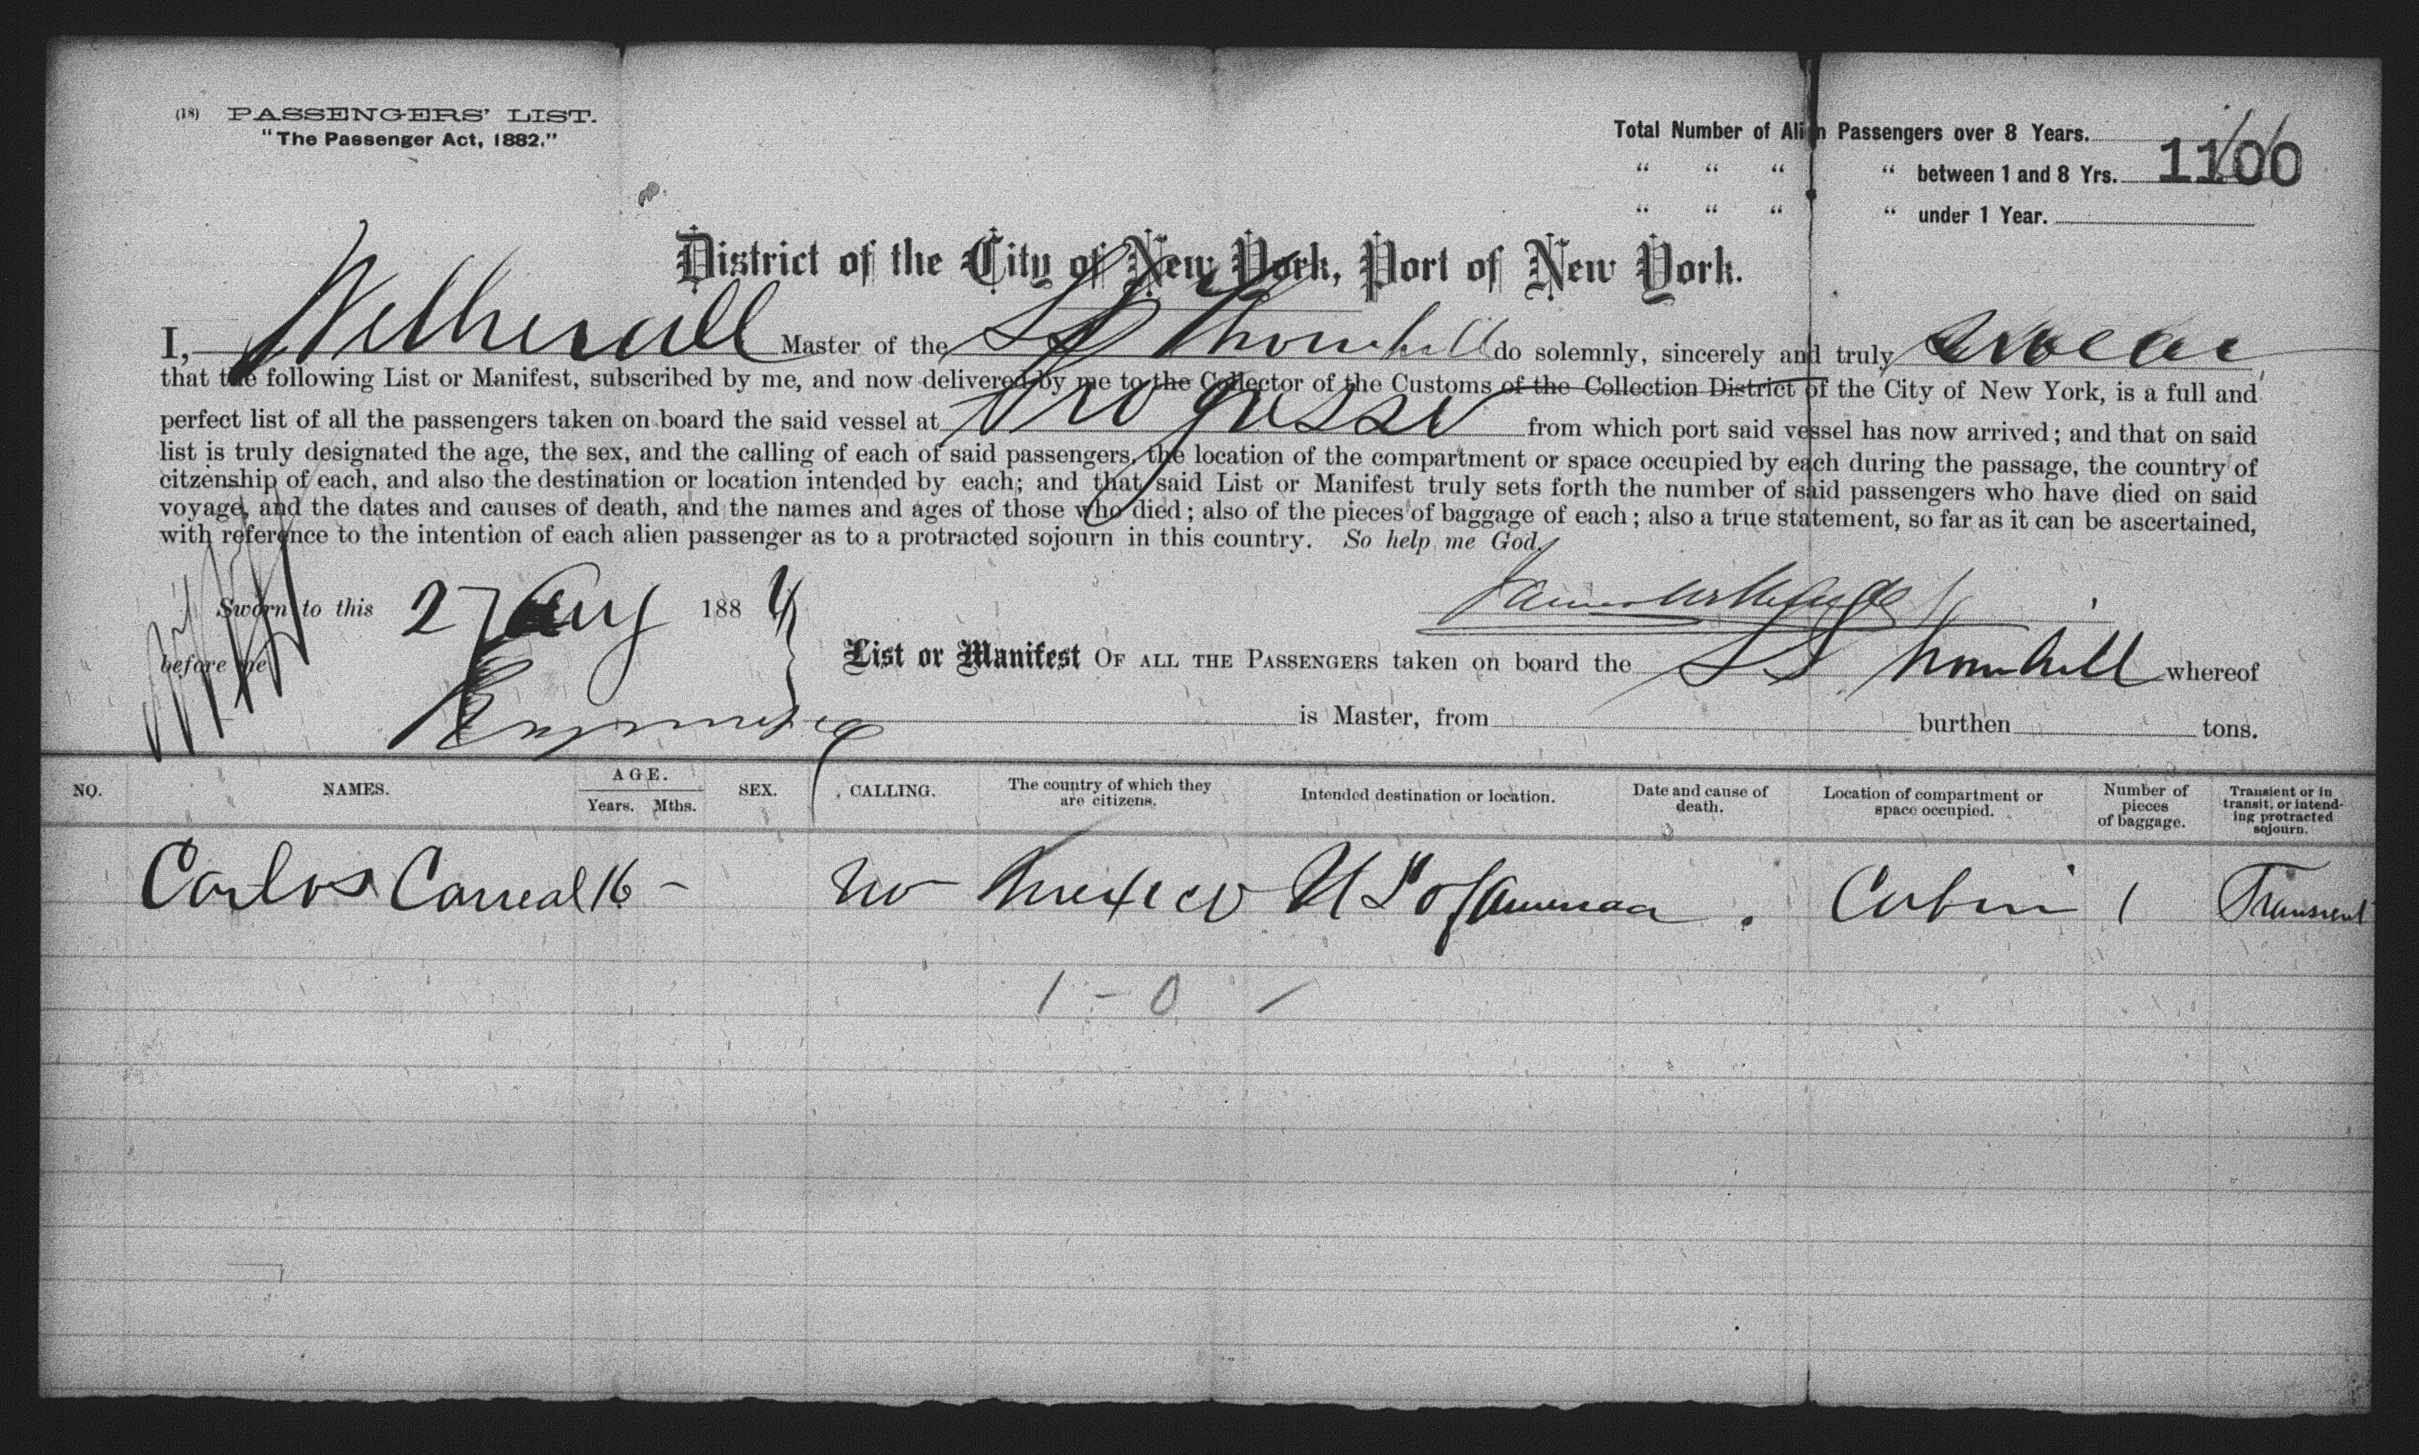 (18) PASSENGERS' LIST.
"The Passenger Act, 1882."
Total Number of Alien Passengers over 8 Years.
" " " " between 1 and 8 Yrs. 1100
" " " " under 1 Year.
District of the City of New York, Port of New York.
I, Wetherall Master of the SS Thornhill do solemnly, sincerely and truly swear
that the following List or Manifest, subscribed by me, and now delivered by me to the Collector of the Customs of the Collection District of the City of New York, is a full and
perfect list of all the passengers taken on board the said vessel at Progresso from which port said vessel has now arrived; and that on said
list is truly designated the age, the sex, and the calling of each of said passengers, the location of the compartment or space occupied by each during the passage, the country of
citzenship of each, and also the destination or location intended by each; and that said List or Manifest truly sets forth the number of said passengers who have died on said
voyage, and the dates and causes of death, and the names and ages of those who died; also of the pieces of baggage of each; also a true statement, so far as it can be ascertained,
with reference to the intention of each alien passenger as to a protracted sojourn in this country. So help me God.
Sworn to this 27 Aug 188
before me
List or Manifest OF ALL THE PASSENGERS taken on board the SS Thornhill whereof
is Master, from burthen tons.
NO. NAMES. AGE. Years. Mths. SEX. CALLING. The country of which they are citizens. Intended destination or location. Date and cause of death. Location of compartment or space occupied. Number of pieces of baggage. Transient or in transit, or intending protracted sojourn.
Carlos Carreal 16 - no Mexico U S of America . Cabin 1 Transient
1 - 0 /